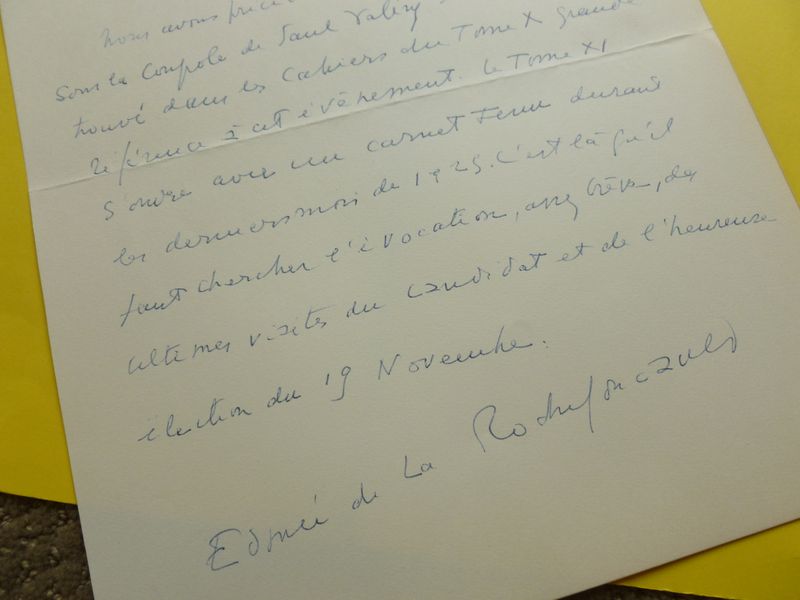 Nous avons
Sous la Coupole de Paul Valéry
trouvé dans les Cahiers du Tome X grande
référence à cet évènement. Le Tome XI
s'ouvre avec un carnet tenu durant
les derniers mois de 1925. C'est là qu'il
faut chercher l'évocation, assez brève, des
ultimes visites du candidat et de l'heureuse
élection du 19 Novembre.
Edmée de La Rochefoucauld